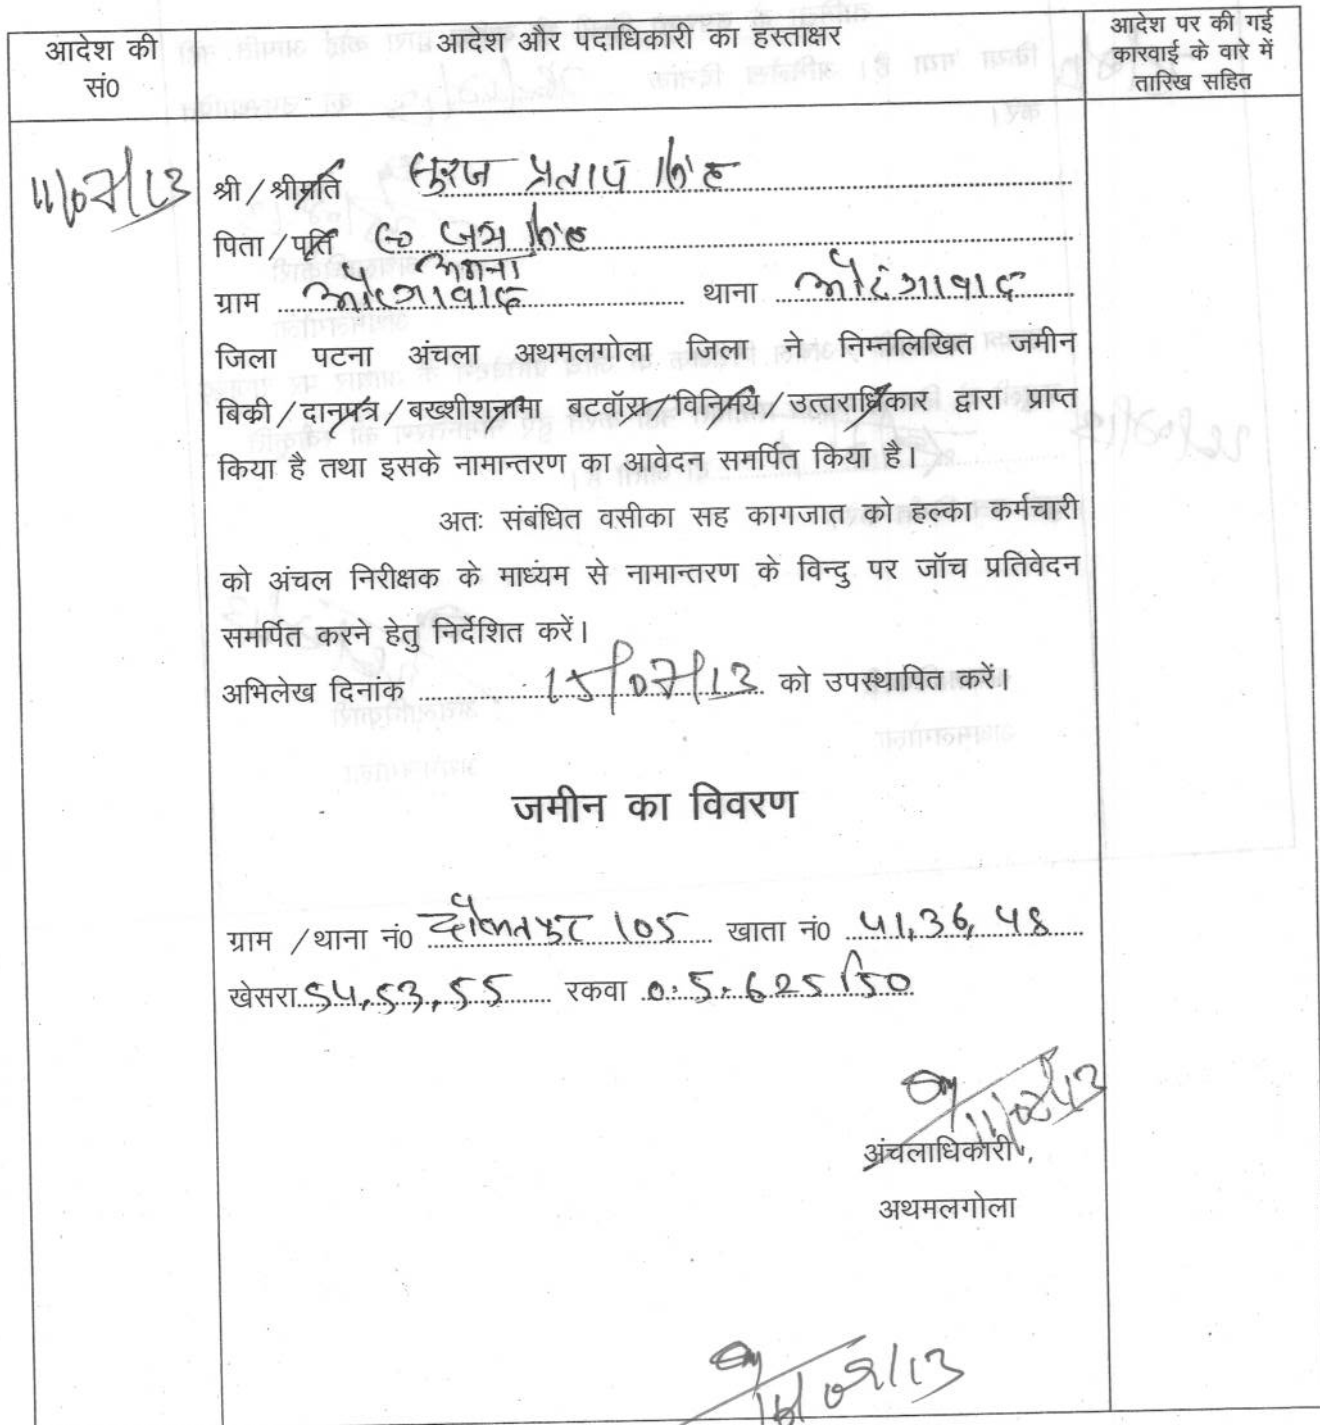 आदेश की
सं0
आदेश और पदाधिकारी का हस्ताक्षर
आदेश पर की गई
कारवाई के वारे में
तारिख सहित
11/07/13
श्री / श्रीमति सुरज प्रताप सिंह
पिता / पति सिंह
ग्राम थाना औरंगावाद
जिला पटना अंचला अथमलगोला जिला ने निम्नलिखित जमीन
बिकी / दानपत्र / बख्शीशनामा बटवॉरा / विनिमय / उत्तराधिकार द्वारा प्राप्त
किया है तथा इसके नामान्तरण का आवेदन समर्पित किया है।
अतः संबंधित वसीका सह कागजात को हल्का कर्मचारी
को अंचल निरीक्षक के माध्यम से नामान्तरण के विन्दु पर जॉच प्रतिवेदन
समर्पित करने हेतु निर्देशित करें।
अभिलेख दिनांक 15/07/13 को उपस्थापित करें।
जमीन का विवरण
ग्राम / थाना नं0 दौलतपुर 105 खाता नं0 41, 36, 48
खेसरा 54, 53, 55 रकवा 0.5.625
अंचलाधिकारी,
अथमलगोला